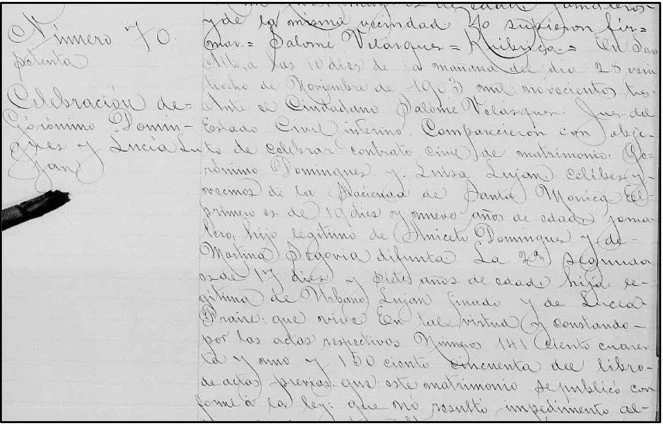 Numero 70.
setenta
Celebración de
Gerónimo Domin-
gues y Lucia Lu
jan
mayores de edad jornaleros
y de la misma vecindad No supieron fir=
mar.= Salome Velásques.= Rubrica.= En San
a las 10 dies de la mañana del dia 28 vein
tiocho de Noviembre de 1903 mil novecientos tres
Ante el Ciudadano Salome Velasques. Jues del
Estado Civil interino Comparecieron con obje-
to de celebrar contrato civil de matrimonio. Ge-
rónimo Domingues y Luisa Lujan Celibes y
vecinos de la Hacienda de Santa Monica el
primero es de 19 dies y nueve años de edad jorna
lero, hijo legitimo de Aniceto Domingues y de
Martina Segovia difunta La 2ª segunda
es de 17 dies y siete años de edad hija le-
gitima de Urbano Lujan finado y de Lucia
que vive En tal virtud y constando
por las actas respectivas Numeros 141 ciento cuaren
ta y uno y 150 ciento cincuenta del libro
de actas previas que este matrimonio se publicó con
forme á la ley: que no resultó impedimento al-